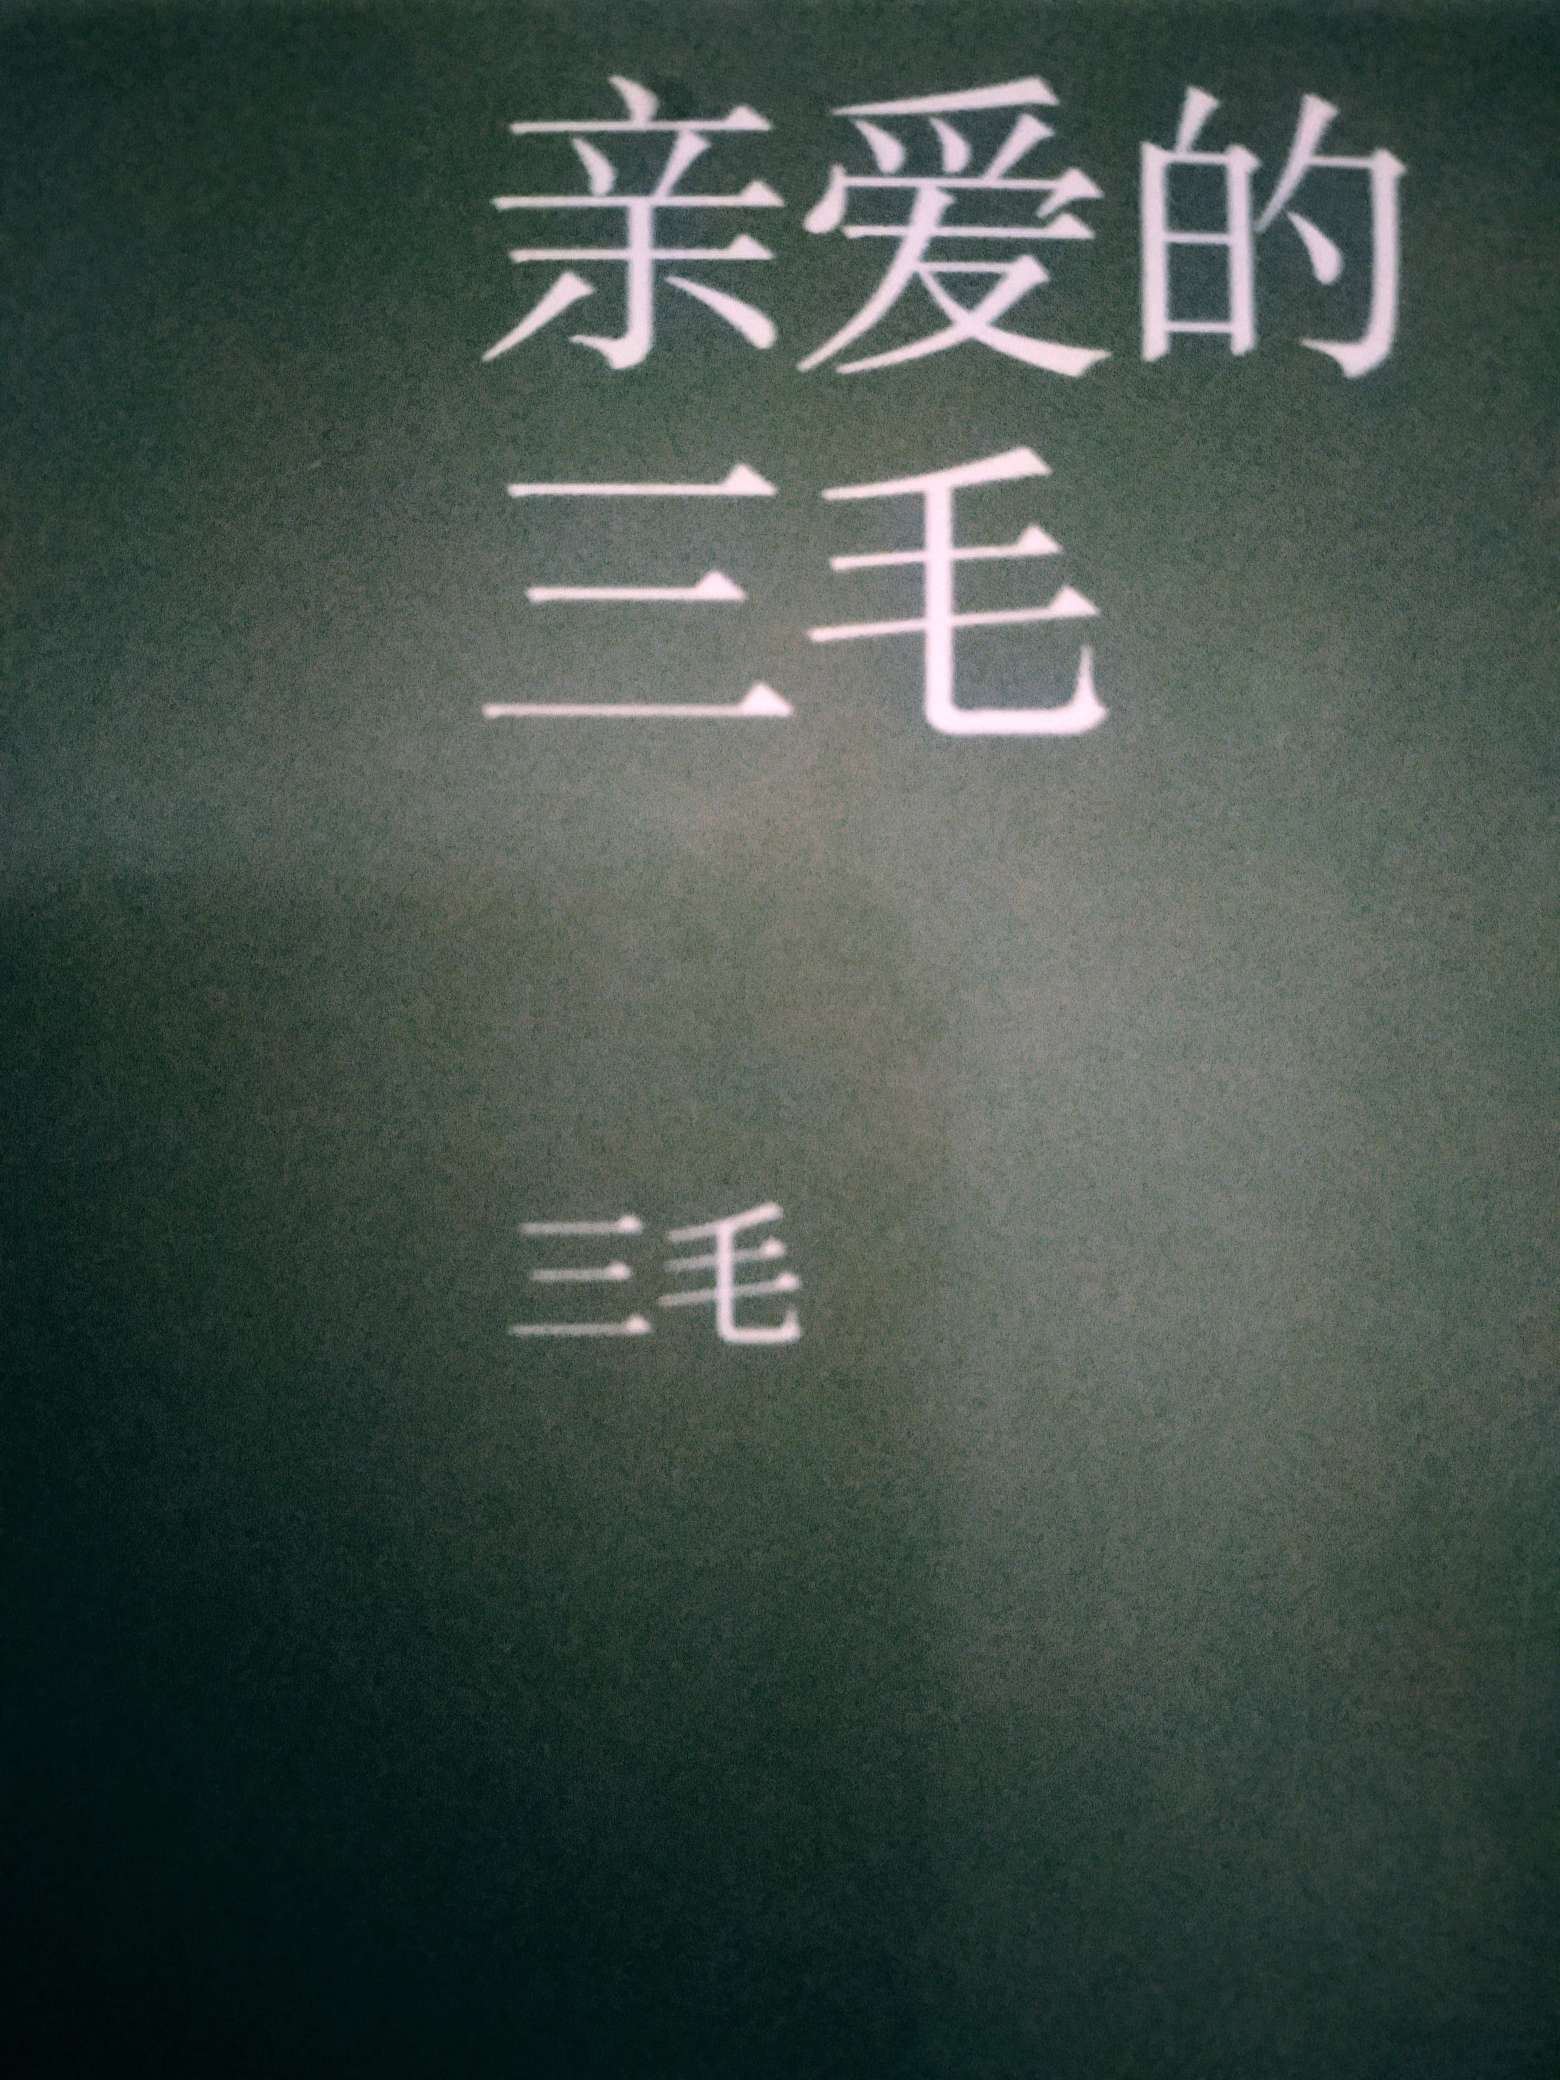 亲爱的
三毛
三毛